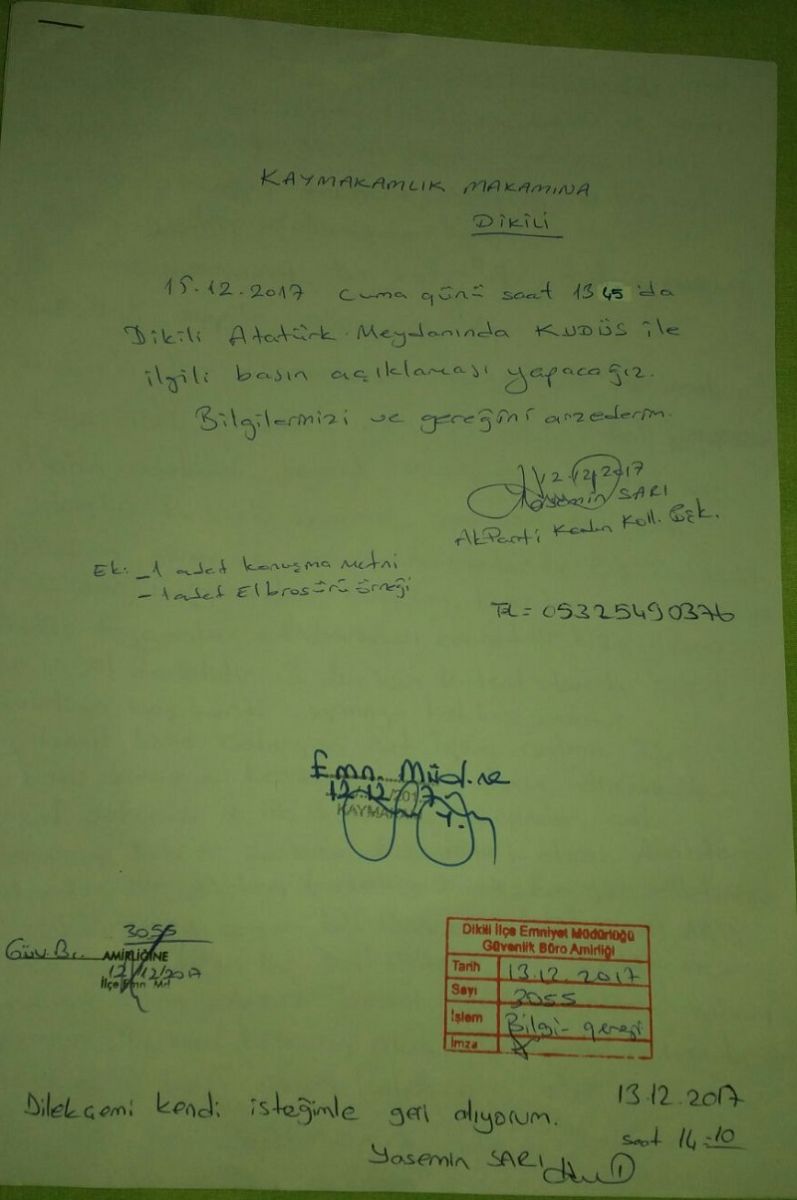 KAYMAKAMLIK MAKAMINA
DİKİLİ
15.12.2017 Cuma günü saat 13 45 'da
Dikili Atatürk Meydanında KUDÜS ile
ilgili basın açıklaması yapacağız.
Bilgilerinizi ve gereğini arzederim.
12.12.2017
Yasemin SARI
AkParti Kadın Koll. Bşk.
Ek: - 1 adet konuşma metni
- 1 adet El broşürü örneği
Tel = 05325490376
Emn. Müd.ne
12.12.2017
KAYMAKAM
3055
Güv. Br. AMİRLİĞİNE
12/12/2017
İlçe Emn Md
Dikili İlçe Emniyet Müdürlüğü
Güvenlik Büro Amirliği
Tarih 13.12.2017
Sayı 3055
İşlem Bilgi - gereği
İmza
Dilekçemi kendi isteğimle geri alıyorum.
13.12.2017
saat 14:10
Yasemin SARI